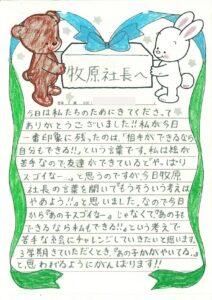 牧原社長へ
今日は私たちのためにきてくださって
ありがとうございました!!私が今日
一番印象に残ったのは、「相手ができるなら
自分もできる!!」という言葉です。私は絵が
苦手なので、友達ができていると「やっぱり
スゴイなー。」と思うのですが今日牧原
社長の言葉を聞いて「もうそういう考えは
やめよう!!」と思いました。なので今日
から「あの子スゴイなー」じゃなくて「あの子が
できるなら私もできる!!」という考えで
苦手な絵にチャレンジしていきたいと思います。
3学期きていただくとき、「あの子がかいてる…。」
と、思われるようにがんばります!!